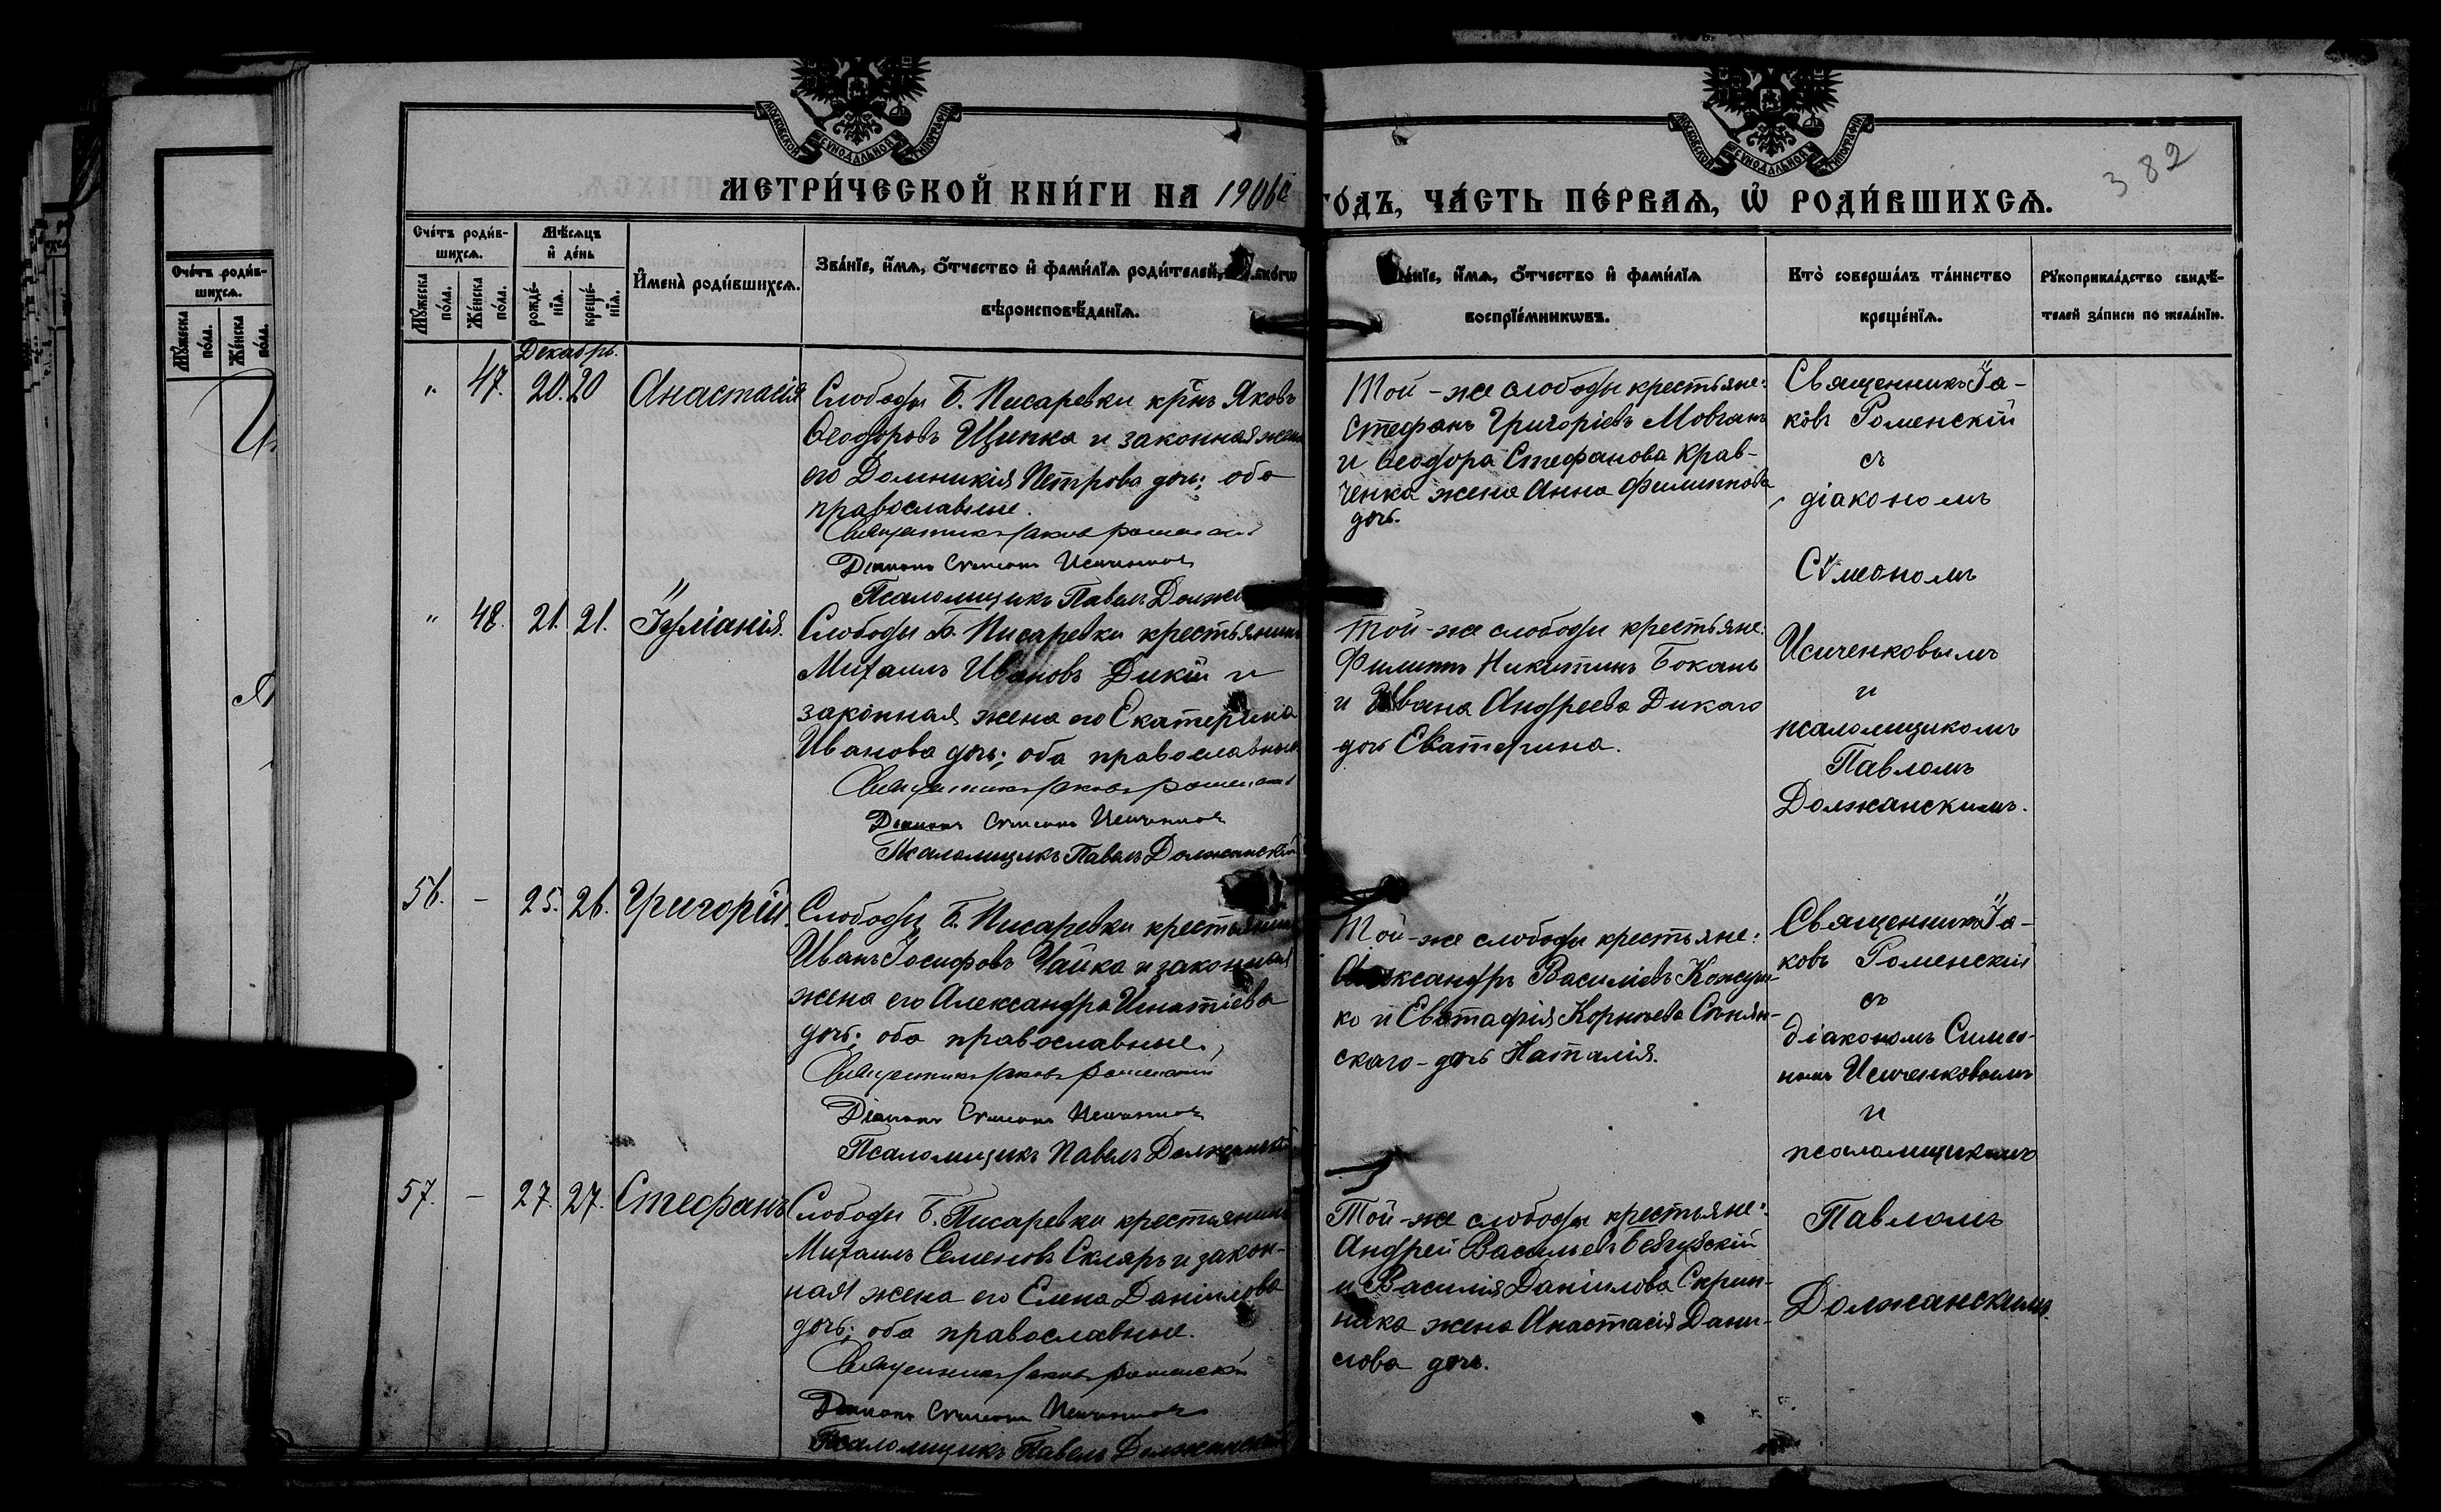 МОСКОВСКОЙ СѴНОДАЛЬНОЙ ТИПОГРАФІИ
МОСКОВСКОЙ СѴНОДАЛЬНОЙ ТИПОГРАФІИ
382
МЕТРИ́ЧЕСКОЙ КНИ́ГИ НА 1906й
ГО́ДЪ, ЧА́СТЬ ПЕ́РВАѦ, Ѡ҆ РОДИ́ВШИХСѦ.
Сче́тъ роди́в-
шихсѧ.
Мꙋ́жеска по́ла.
Же́нска по́ла.
Сче́тъ роди́в-
шихсѧ.
Мꙋ́жеска по́ла.
Же́нска по́ла.
Мѣ́сѧцъ
и҆ де́нь
рожде́-
нїѧ.
креще́-
нїѧ.
И҆мена̀ роди́вшихсѧ.
Зва́нїе, и҆́мѧ, ѻ҆́тчество и҆ фами́лїѧ роди́телей, и҆ како́гѡ
вѣроисповѣ́данїѧ.
Зва́нїе, и҆́мѧ, ѻ҆́тчество и҆ фами́лїѧ
воспрїе́мникѡвъ.
Кто̀ соверша́лъ та́инство
креще́нїѧ.
Рꙋкоприкла́дство свидѣ́-
телей за́писи по жела́нїю.
Декабрь.
" 47. 20. 20 Анастасія
Слободы Б. Писаревки кр-нъ Яковъ
Ѳеодоровъ Щипка и законная жена
его Домникія Петрова дочь; оба
православные.
Священникъ Іаковъ Роменскій
Діаконъ Сѵмеонъ Исиченковъ
Псаломщикъ Павелъ Должа
Той-же слободы крестьяне:
Стефанъ Григоріевъ Мовчанъ
и Ѳеодора Стефанова Крав-
ченка жена Анна Филиппова
дочь.
Священникъ Іа-
ковъ Роменскій
съ
діакономъ
Сѵмеономъ
Исиченковымъ
и
псаломщикомъ
Павломъ
Должанскимъ.
" 48. 21. 21. Іуліанія.
Слободы Б. Писаревки крестьянинъ
Михаилъ Ивановъ Дикій и
законная жена его Екатерина
Иванова дочь; оба православные
Священникъ Іаковъ Роменскій
Діаконъ Сѵмеонъ Исиченковъ
Псаломщикъ Павелъ Должанскій
Той-же слободы крестьяне:
Филиппъ Никитинъ Боканъ
и Ивана Андреева Дикаго
дочь Екатерина.
56. - 25. 26. Григорій.
Слободы Б. Писаревки крестьянинъ
Иванъ Іосифовъ Чайка и законная
жена его Александра Игнатіева
дочь; оба православные.
Священникъ Іаковъ Роменскій
Діаконъ Сѵмеонъ Исиченковъ
Псаломщикъ Павелъ Должанскій
Той-же слободы крестьяне:
Александръ Василіевъ Кожуш-
ко и Евстафія Корнѣева
скаго-дочь Наталія.
Священникъ Іа-
ковъ Роменскій
съ
діакономъ Симео-
номъ Исиченковымъ
и
псаломщикомъ
Павломъ
Должанскимъ.
57. - 27. 27. Стефанъ
Слободы Б. Писаревки крестьянинъ
Михаилъ Семеновъ Скляръ и закон-
ная жена его Елена Даніилова
дочь; оба православные.
Священникъ Іаковъ Роменскій
Діаконъ Сѵмеонъ Исиченковъ
Псаломщикъ Павелъ Должанскій
Той-же слободы крестьяне:
Андрей Васильевъ
и Василія Даніилова Скрип-
ника жена Анастасія Дани-
лова дочь.